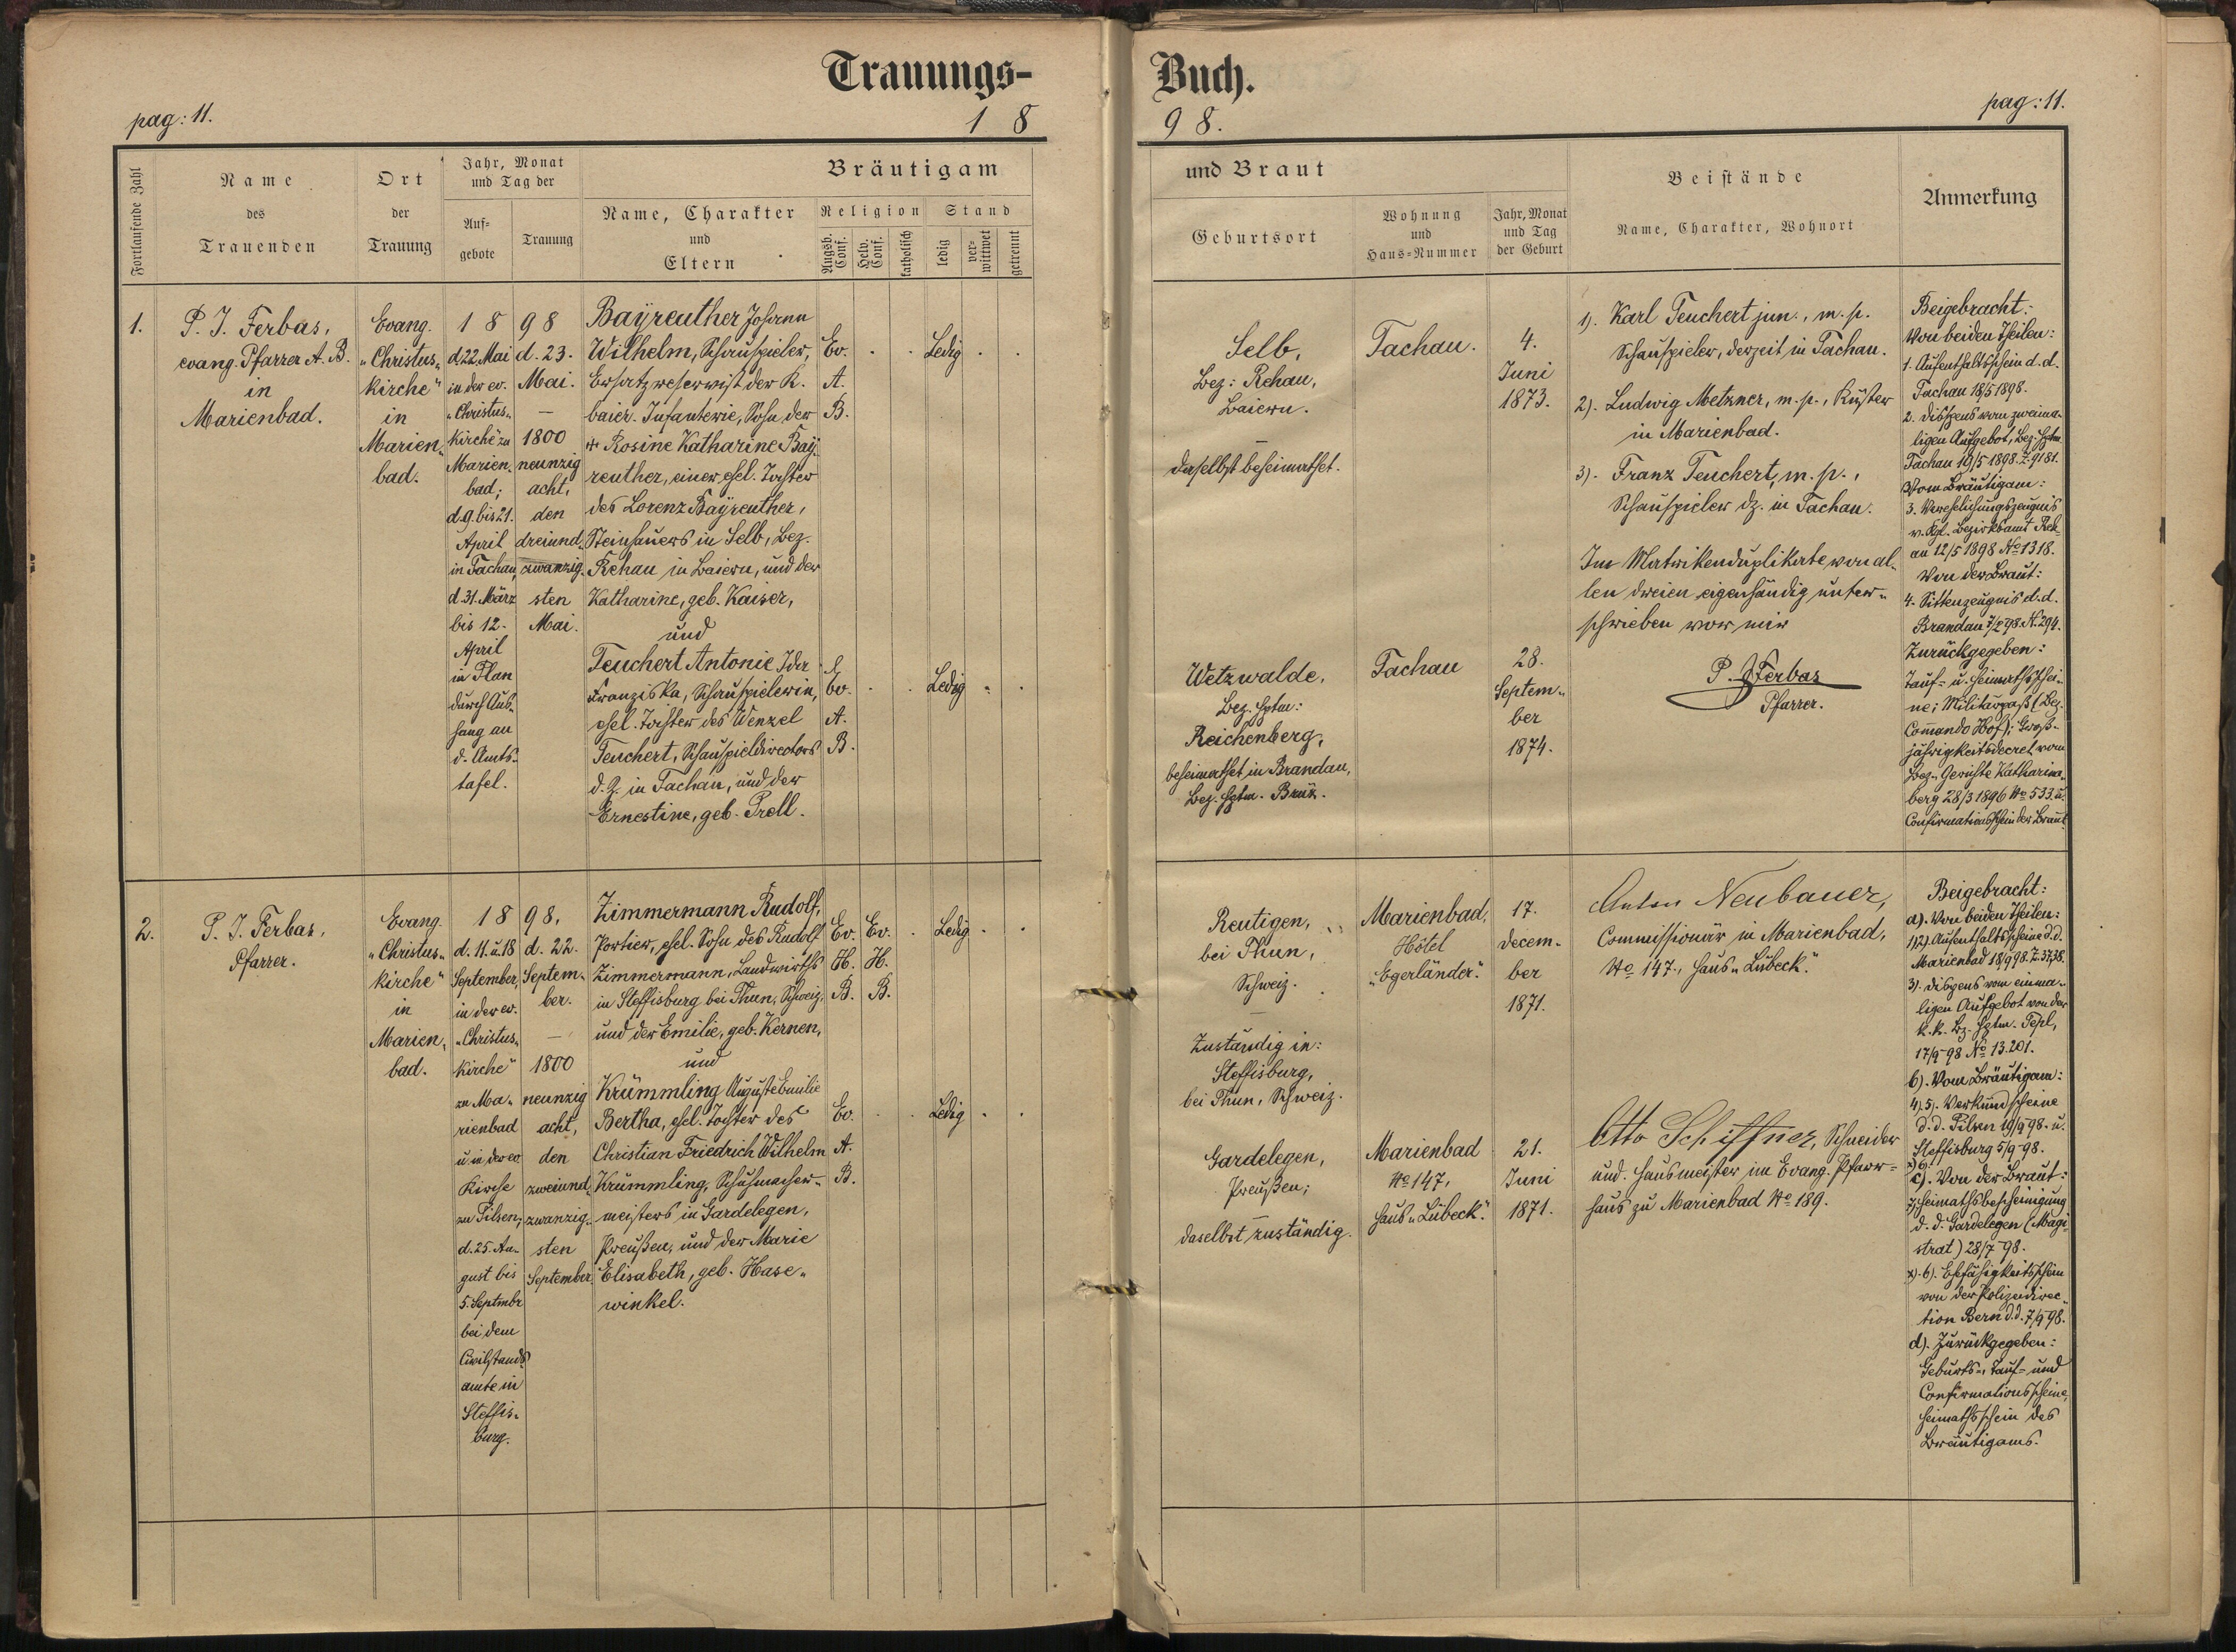 Trauungs-
Buch.
pag: 11.
1 8
9 8.
pag: 11.
Fortlaufende Zahl
Name
des
Trauenden
Ort
der
Trauung
Jahr, Monat
und Tag der
Auf-
gebote
Trauung
Bräutigam
Name, Charakter
und
Eltern
Religion
Augsb.
Conf.
Helv.
Conf.
katholisch
Stand
ledig
ver-
wittwet
getrennt
und Braut
Geburtsort
Wohnung
und
Haus-Nummer
Jahr, Monat
und Tag
der Geburt
Beistände
Name, Charakter, Wohnort
Anmerkung
1.
P. J. Ferbas,
evang. Pfarrer A. B.
in
Marienbad.
Evang.
"Christus-
kirche"
in
Marien-
bad.
1 8
d. 22. Mai
in der ev.
"Christus-
kirche" zu
Marien-
bad;
d. 9. bis 21.
April
in Tachau,
d. 31. März
bis 12.
April
in Plan
durch Aus-
hang an
d. Amts-
tafel.
9 8
d. 23.
Mai.
—
1800
neunzig
acht,
den
dreiund-
zwanzig-
sten
Mai.
Bayreuther Johann
Wilhelm, Schauspieler,
Ersatzreservist der K.
baier. Infanterie, Sohn der
+ Rosine Katharine Bay-
reuther, einer ehel. Tochter
des Lorenz Bayreuther,
Steinhauers in Selb, Bez.
Rehau in Baiern, und der
Katharine, geb. Kaiser,
und
Teuchert Antonie Ida
Franziska, Schauspielerin,
ehel. Tochter des Wenzel
Teuchert, Schauspieldirectors
d. Z. in Tachau, und der
Ernestine, geb. Proll.
Ev.
A.
B.
Ledig
Ev.
A.
B.
Ledig
Selb,
Bez: Rehau,
Baiern.
—
daselbst beheimathet.
Tachau.
4.
Juni
1873.
Wetzwalde,
Bez. Hptm:
Reichenberg,
beheimathet in Brandau,
Bez. Hptm. Brüx.
Tachau
28.
Septem-
ber
1874.
1). Karl Teuchert jun., m. p.
Schauspieler, derzeit in Tachau.
2). Ludwig Metzner, m. p., Küster
in Marienbad.
3). Franz Teuchert, m. p.,
Schauspieler dz. in Tachau.
Im Matrikenduplikate von al-
len dreien eigenhändig unter-
schrieben vor mir
P. J. Ferbas
Pfarrer.
Beigebracht:
Von beiden Theilen:
1. Aufenthaltsschein d. d.
Tachau 18/5 1898.
2. Dispens vom zweima-
ligen Aufgebot, Bez. Hptm.
Tachau 19/5 1898. Z. 9181.
Vom Bräutigam:
3. Verehelichungszeugnis
v. Kgl. Bezirksamt Reh-
au 12/5 1898 No 1318.
Von der Braut:
4. Sittenzeugnis d. d.
Brandau 7/2 98 N. 294.
Zurückgegeben:
Tauf- u. Heimathsschei-
ne; Militärpaß (Bez.
Commando Hof); Groß-
jährigkeitsdecret vom
Bez. Gerichte Katharina-
berg 28/3 1896 No 533. u.
Confirmationsschein der Braut.
2.
P. J. Ferbas,
Pfarrer.
Evang.
"Christus-
kirche"
in
Marien-
bad.
1 8
d. 11. u. 18
September,
in der ev.
"Christus-
kirche"
zu Ma-
rienbad
u. in der ev.
Kirche
zu Pilsen;
d. 25. Au-
gust bis
5. Septmbr
bei dem
Civilstands
amte in
Steffis-
burg.
9 8,
d. 22.
Septem-
ber.
—
1800
neunzig
acht,
den
zweiund-
zwanzig-
sten
September
Zimmermann Rudolf,
Portier, ehel. Sohn des Rudolf
Zimmermann, Landwirths
in Steffisburg bei Thun, Schweiz,
und der Emilie, geb. Kernen,
und
Krümmling Auguste Emilie
Bertha, ehel. Tochter des
Christian Friedrich Wilhelm
Krümmling, Schuhmacher-
meisters in Gardelegen,
Preußen, und der Marie
Elisabeth, geb. Hase-
winkel.
Ev.
H.
B.
Ev.
H.
B.
Ledig
Ev.
A.
B.
Ledig
Reutigen,
bei Thun,
Schweiz.
—
Zuständig in:
Steffisburg,
bei Thun, Schweiz.
Marienbad,
Hôtel
"Egerländer".
17.
Decem-
ber
1871.
Gardelegen,
Preußen;
—
daselbst zuständig.
Marienbad
No 147,
Haus "Lübeck".
21.
Juni
1871.
Anton Neubauer,
Commissionär in Marienbad,
No 147., Haus "Lübeck".
Otto Schiffner, Schneider
und Hausmeister im Evang. Pfarr-
haus zu Marienbad No 189.
Beigebracht:
a). Von beiden Theilen:
1)2). Aufenthaltsscheine d. d.
Marienbad 18/9 98. Z. 37,38.
3). Dispens vom einma-
ligen Aufgebot von der
k. k. Bz. Hptm. Tepl,
17/9 98 No 13.201.
b). Vom Bräutigam:
4). 5). Verkündscheine
d. d. Pilsen 19/9 98. u.
Steffisburg 5/9 98.
c). Von der Braut:
7) Heimathsbescheinigung
d. d. Gardelegen (Magi-
strat) 28/7 98.
x). 6). Ehefähigkeitsschein
von der Polizeidirec-
tion Bern d. d. 7/9 98.
d). Zurückgegeben:
Geburts-, Tauf- und
Confirmationsscheine,
Heimathsschein des
Bräutigams.